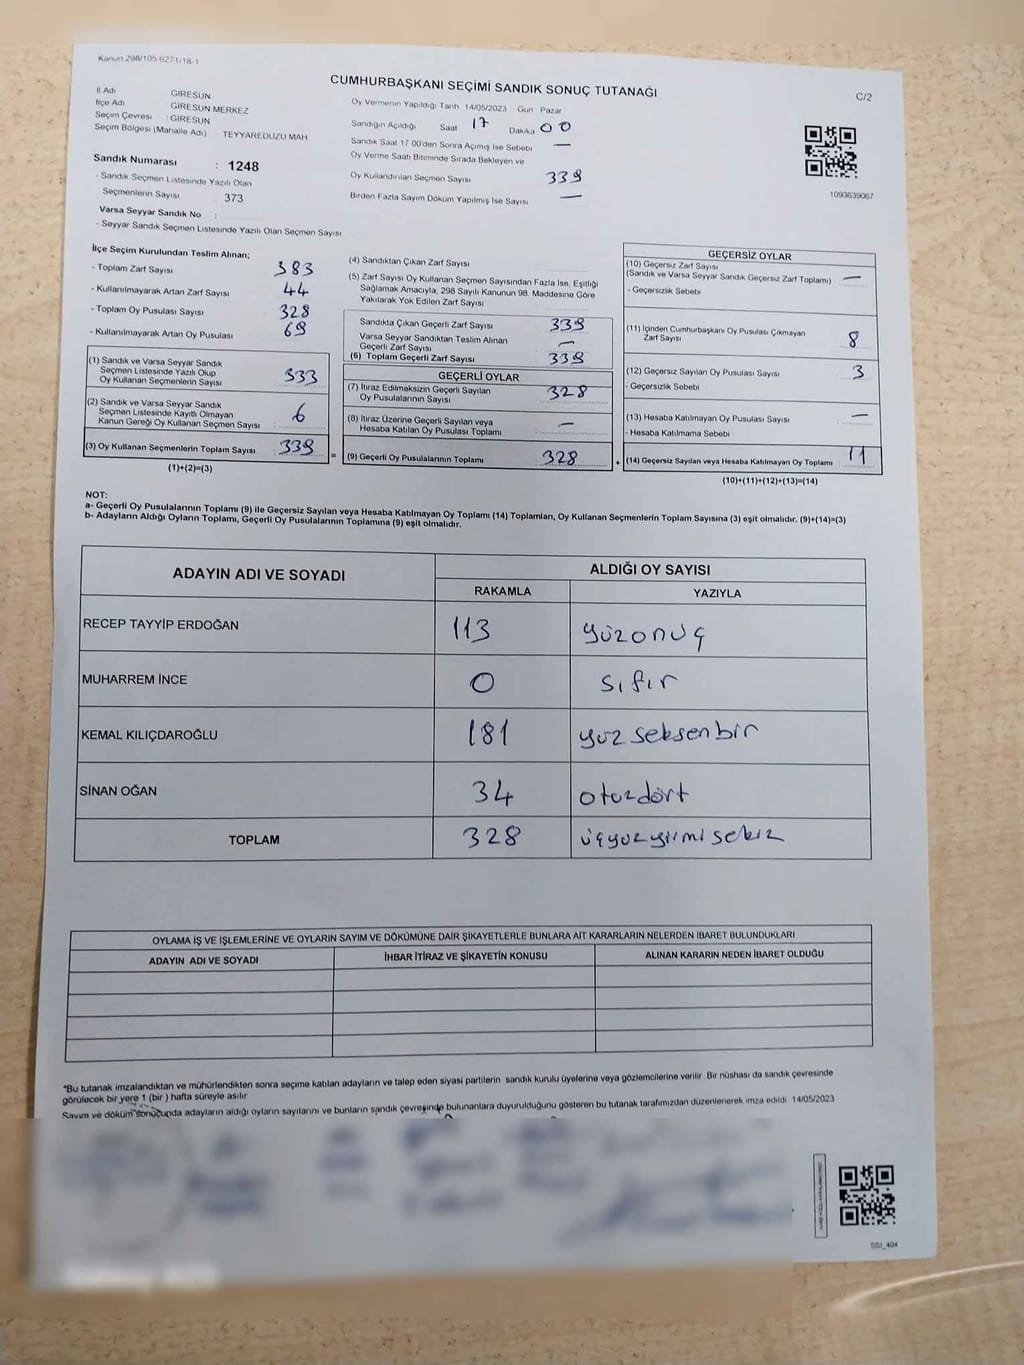 Kanun 298/105 6271/18-1
CUMHURBAŞKANI SEÇİMİ SANDIK SONUÇ TUTANAĞI
C/2
İl Adı GİRESUN
İlçe Adı GİRESUN MERKEZ
Seçim Çevresi : GİRESUN
Seçim Bölgesi (Mahalle Adı) TEYYAREDUZU MAH
Sandık Numarası : 1248
- Sandık Seçmen Listesinde Yazılı Olan
Seçmenlerin Sayısı : 373
Varsa Seyyar Sandık No :
- Seyyar Sandık Seçmen Listesinde Yazılı Olan Seçmen Sayısı
Oy Vermenin Yapıldığı Tarih 14/05/2023 Gün Pazar
Sandığın Açıldığı Saat 17 Dakika 00
Sandık Saat 17 00'den Sonra Açımış İse Sebebi —
Oy Verme Saati Bitiminde Sırada Bekleyen ve
Oy Kullandırılan Seçmen Sayısı 339
Birden Fazla Sayım Döküm Yapılmış İse Sayısı —
1093639067
İlçe Seçim Kurulundan Teslim Alınan;
- Toplam Zarf Sayısı 383
- Kullanılmayarak Artan Zarf Sayısı 44
- Toplam Oy Pusulası Sayısı 328
- Kullanılmayarak Artan Oy Pusulası 69
(1) Sandık ve Varsa Seyyar Sandık
Seçmen Listesinde Yazılı Olup
Oy Kullanan Seçmenlerin Sayısı : 333
(2) Sandık ve Varsa Seyyar Sandık
Seçmen Listesinde Kayıtlı Olmayan
Kanun Gereği Oy Kullanan Seçmen Sayısı : 6
(3) Oy Kullanan Seçmenlerin Toplam Sayısı : 339
(1)+(2)=(3)
=
(4) Sandıktan Çıkan Zarf Sayısı
(5) Zarf Sayısı Oy Kullanan Seçmen Sayısından Fazla İse, Eşitliği
Sağlamak Amacıyla, 298 Sayılı Kanunun 98. Maddesine Göre
Yakılarak Yok Edilen Zarf Sayısı
Sandıkta Çıkan Geçerli Zarf Sayısı 339
Varsa Seyyar Sandıktan Teslim Alınan
Geçerli Zarf Sayısı —
(6) Toplam Geçerli Zarf Sayısı 339
GEÇERLİ OYLAR
(7) İtiraz Edilmeksizin Geçerli Sayılan
Oy Pusulalarının Sayısı 328
(8) İtiraz Üzerine Geçerli Sayılan veya
Hesaba Katılan Oy Pusulası Toplamı —
(9) Geçerli Oy Pusulalarının Toplamı 328
+
GEÇERSİZ OYLAR
(10) Geçersiz Zarf Sayısı
(Sandık ve Varsa Seyyar Sandık Geçersiz Zarf Toplamı) —
- Geçersizlik Sebebi
(11) İçinden Cumhurbaşkanı Oy Pusulası Çıkmayan
Zarf Sayısı 8
(12) Geçersiz Sayılan Oy Pusulası Sayısı 3
- Geçersizlik Sebebi
(13) Hesaba Katılmayan Oy Pusulası Sayısı —
- Hesaba Katılmama Sebebi
(14) Geçersiz Sayılan veya Hesaba Katılmayan Oy Toplamı 11
(10)+(11)+(12)+(13)=(14)
NOT:
a- Geçerli Oy Pusulalarının Toplamı (9) ile Geçersiz Sayılan veya Hesaba Katılmayan Oy Toplamı (14) Toplamları, Oy Kullanan Seçmenlerin Toplam Sayısına (3) eşit olmalıdır. (9)+(14)=(3)
b- Adayların Aldığı Oyların Toplamı, Geçerli Oy Pusulalarının Toplamına (9) eşit olmalıdır.
ADAYIN ADI VE SOYADI
ALDIĞI OY SAYISI
RAKAMLA YAZIYLA
RECEP TAYYİP ERDOĞAN 113 yüzonüç
MUHARREM İNCE 0 sıfır
KEMAL KILIÇDAROĞLU 181 yüz seksenbir
SİNAN OĞAN 34 otuzdört
TOPLAM 328 üçyuzyirmi sekiz
OYLAMA İŞ VE İŞLEMLERİNE VE OYLARIN SAYIM VE DÖKÜMÜNE DAİR ŞİKAYETLERLE BUNLARA AİT KARARLARIN NELERDEN İBARET BULUNDUKLARI
ADAYIN ADI VE SOYADI İHBAR İTİRAZ VE ŞİKAYETİN KONUSU ALINAN KARARIN NEDEN İBARET OLDUĞU
*Bu tutanak imzalandıktan ve mühürlendikten sonra seçime katılan adayların ve talep eden siyasi partilerin sandık kurulu üyelerine veya gözlemcilerine verilir. Bir nüshası da sandık çevresinde
görülecek bir yere 1 (bir ) hafta süreyle asılır
Sayım ve döküm sonuçunda adayların aldığı oyların sayılarını ve bunların sandık çevresinde bulunanlara duyurulduğunu gösteren bu tutanak tarafımızdan düzenlenerek imza edildi 14/05/2023
SSI_404